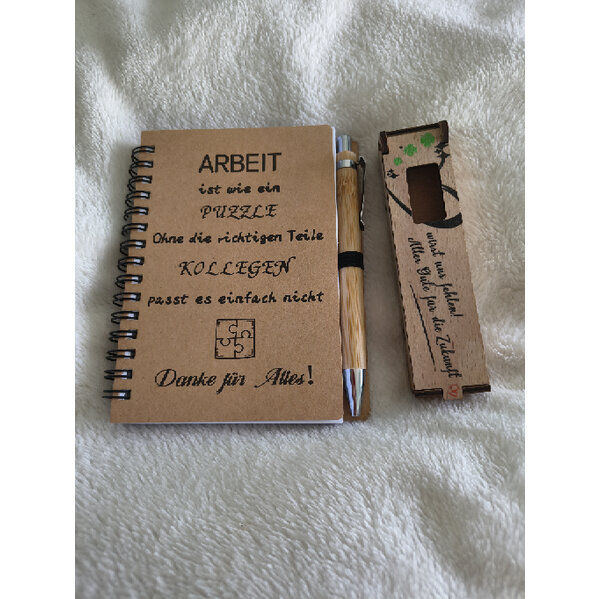 ARBEIT
ist wie ein
PUZZLE
Ohne die richtigen Teile
KOLLEGEN
passt es einfach nicht
Danke für Alles!
wirst uns fehlen!
Alles Gute für die Zukunft